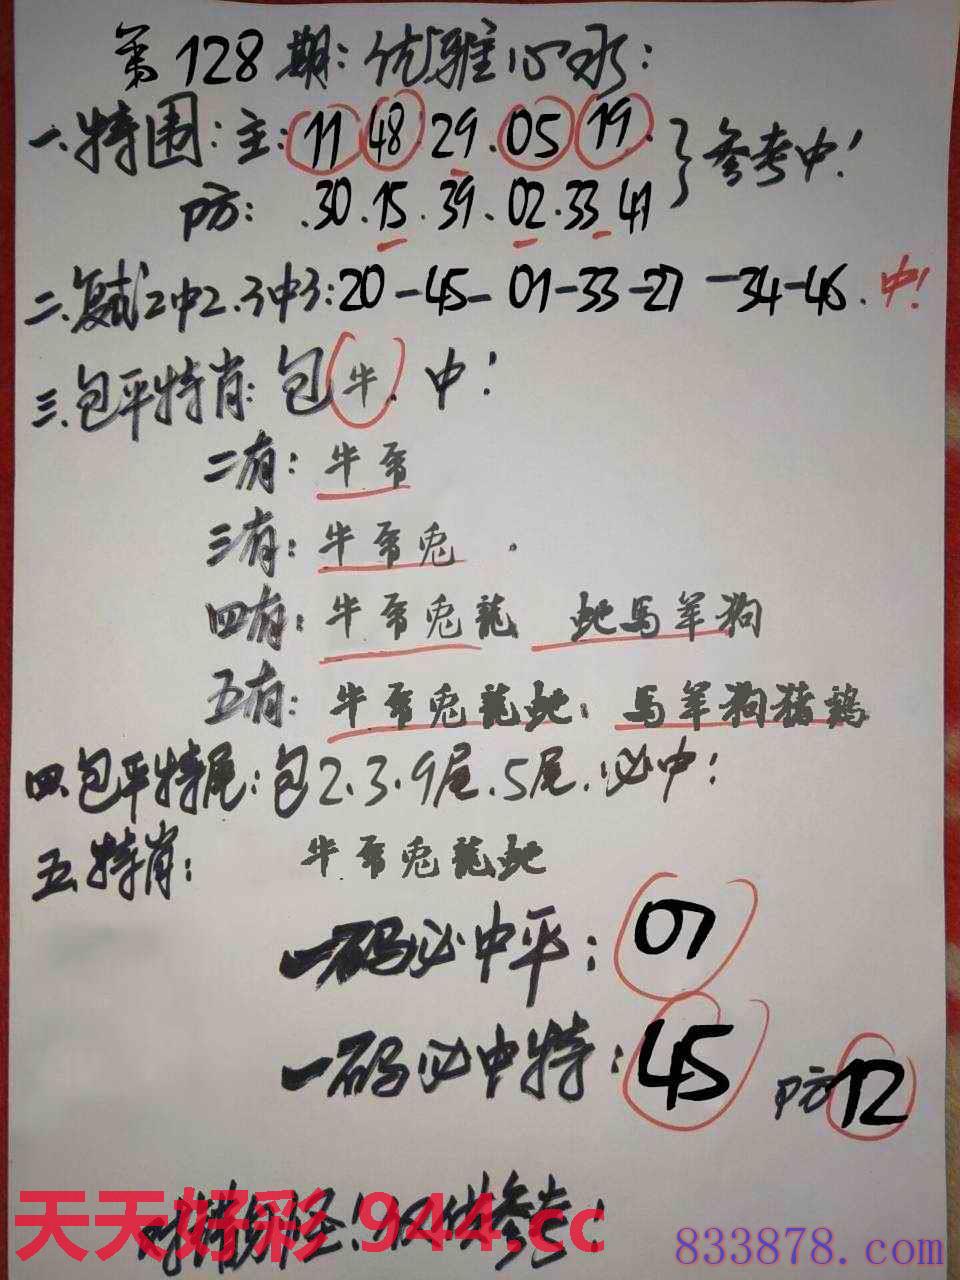 第128期:优雅心水:
一.特围:主:11 48 29.05 19.}参考中!
防:.30.15.39.02.33 41
二.复式2中2.3中3:20-45-01-33-27-34-46.中!
三.包平特肖:包牛.中!
二有:牛
三有:牛 兔.
四有:牛 兔龍 蛇馬羊狗
五有:牛 兔龍蛇:馬羊狗猪鷄
四.包平特尾:包2.3.9尾.5尾.必中!
五.特肖:牛 兔龍蛇
一码必中平:
一码必中特:45 防12
对错勿怪!仅供参考!
天天好彩 944.cc
833878.com